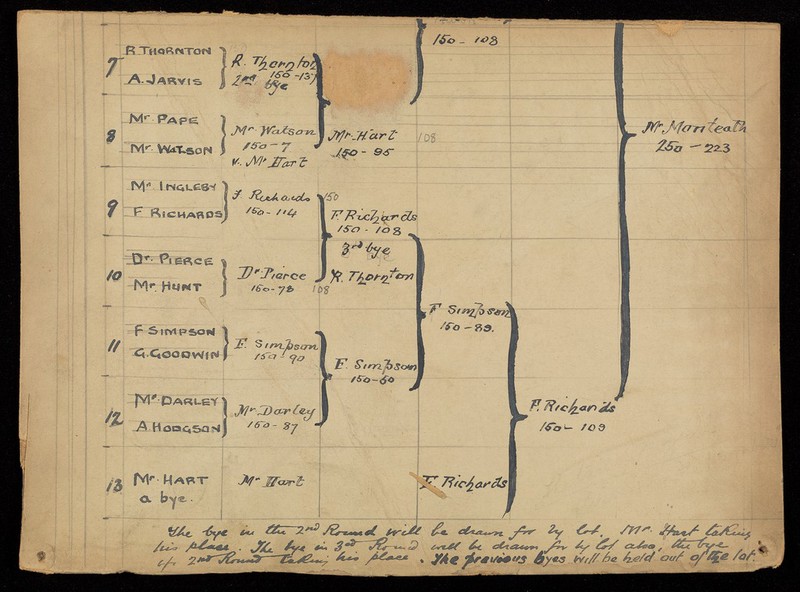 150 - 108
7
R. THORNTON
A. JARVIS
R. Thornton
150-137
2nd bye
8
Mr PAPE
Mr WATSON
Mr Watson
150-7
v. Mr Hart
Mr Hart
150-95
108
9
Mr INGLEBY
F RICHARDS
F Richards
150-114
150
F. Richards
150-108
3rd bye
10
Dr PIERCE
Mr HUNT
Dr Pierce
150-78
108
R. Thornton
11
F SIMPSON
G. GOODWIN
F. Simpson
150-90
F. Simpson
150-60
F Simpson
150-89.
12
Mr DARLEY
A HODGSON
Mr Darley
150-87
13
Mr HART
a bye.
Mr Hart
F. Richards
F. Richards
150-109
Mr Manteath
250-223
The bye in the 2nd Round will be drawn for by lot, Mr Hart taking
his place. The bye in 3rd Round will be drawn for by lot also, the bye
of 2nd Round taking his place. The previous byes will be held out of the lot.